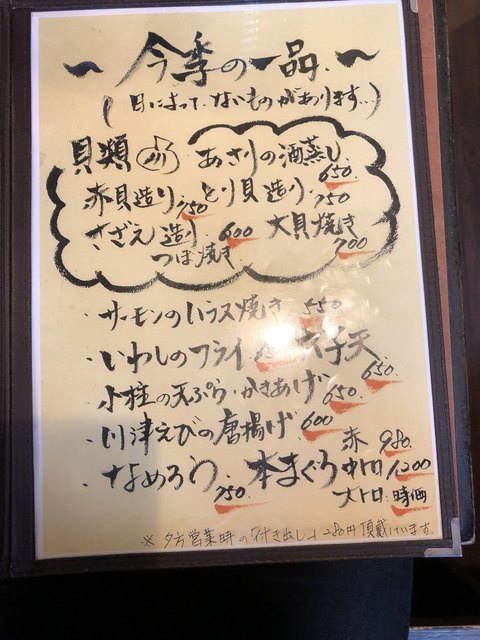 ~ 今季の一品. ~
(日によって、ないものがあります..)
貝類 あさりの酒蒸し 650.
赤貝造り 750 とり貝造り 750
さざえ造り つぼ焼き 600 大貝焼き 700
・サーモンのハラス焼き 550
・いわしのフライ 穴子天 650.
・小柱の天ぷら・かきあげ 650.
・川津えびの唐揚げ 600
・なめろう 750. 本まぐろ 赤 980.
中トロ 1200
大トロ 時価
※ 夕方営業時の「付き出し」280円頂戴しています.